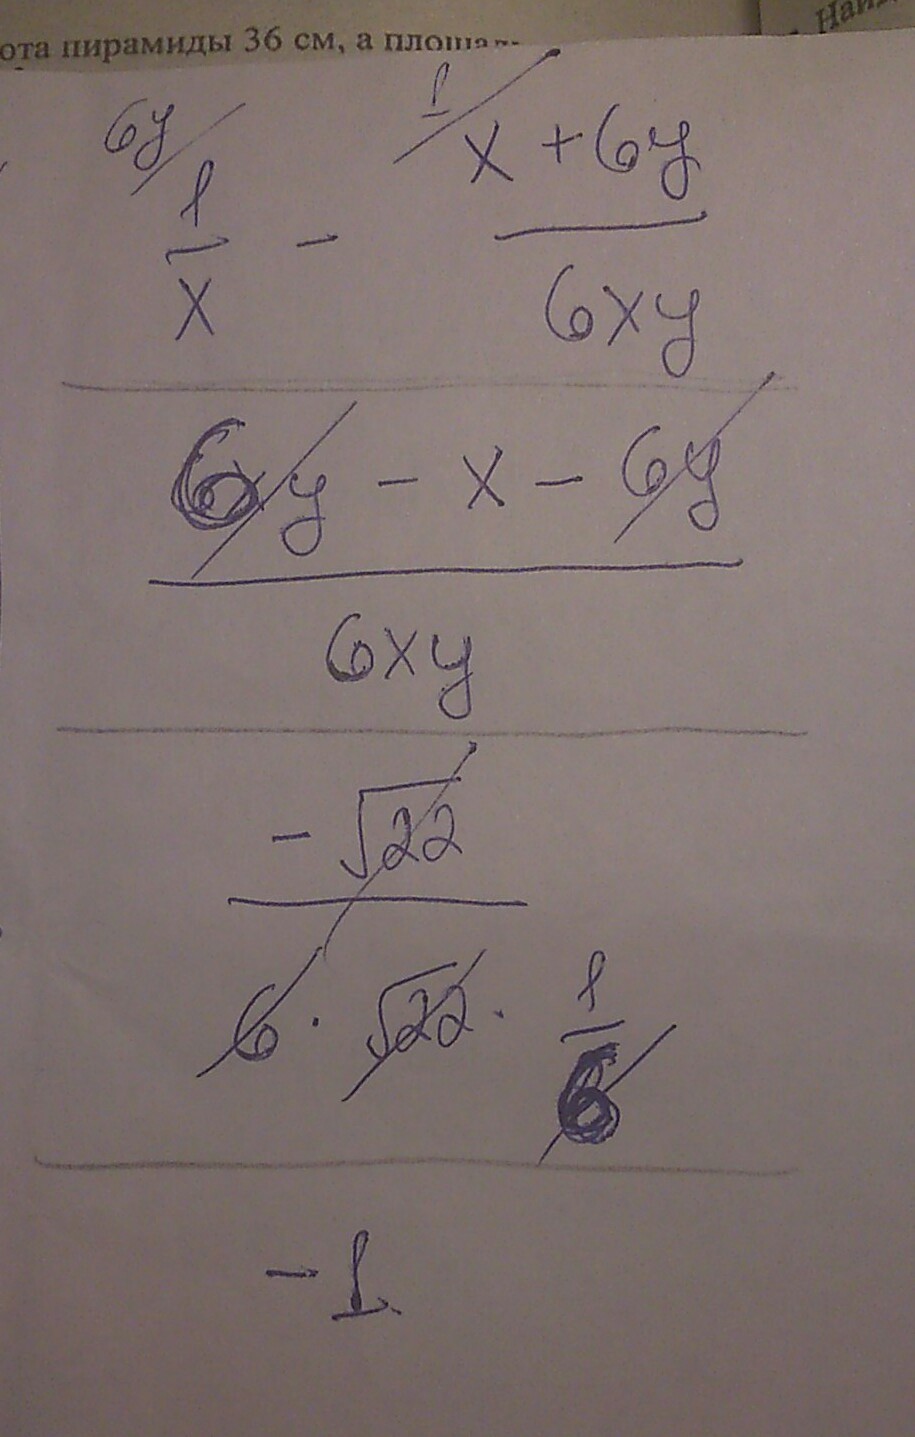 ота пирамиды 36 см, а площад
Най
6y/ 1/x - 1/ (x + 6y)/(6xy)
(6y - x - 6y)/(6xy)
(-√22)/(6 · √22 · 1/6)
-1